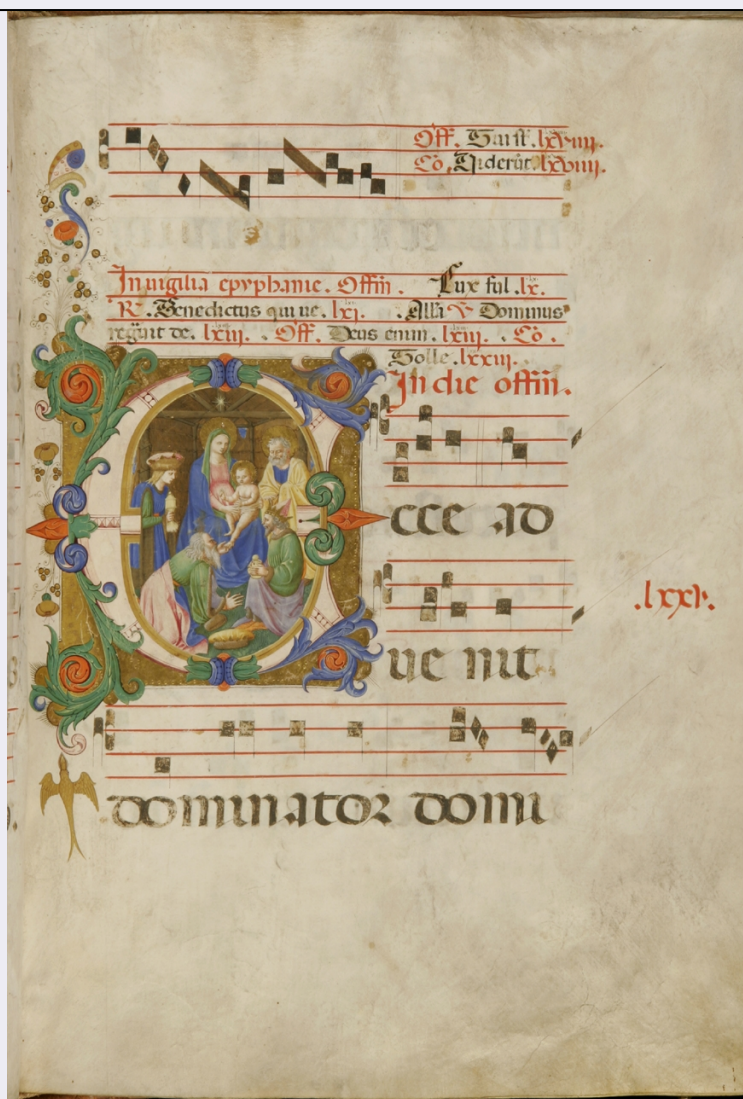 Off.
Co. Viderūt. lxviiii.
In uigilia epyphanie. Offm. Lux ful .lx.
R. Benedictus qui ue. lxj. Alla V Dominus
regūit de. lxiij. Off. Deus enim. lxiiij. Co.
Tolle. lxxiij.
In die offm.
Ecce ad
ue nit
.lxxj.
dominator domi